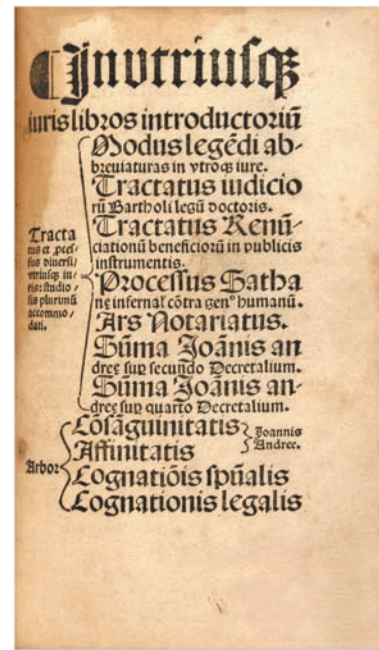 Jn vtriusq3
iuris libros introductoriũ
Modus legẽdi ab-
breuiaturas in vtroq3 iure.
Tractatus iudicio
rũ Bartholi legũ doctoris.
Tractatus Renũ-
ciationũ beneficiorũ in publicis
instrumentis.
Processus Satha
nę infernal' cõtra gen⁹ humanũ.
Ars Notariatus.
Sũma Joãnis an
dreę sup secundo Decretalium.
Sũma Joãnis an-
dreę sup quarto Decretalium.
Tracta
tus et ꝓces/
sus diuersi/
vtriusq3 iu/
ris: studio/
sis plurimũ
accommo/
dati.
Arbor
Cõsãguinitatis
Affinitatis
Joannis
Andree.
Cognatiõis spũalis
Cognationis legalis